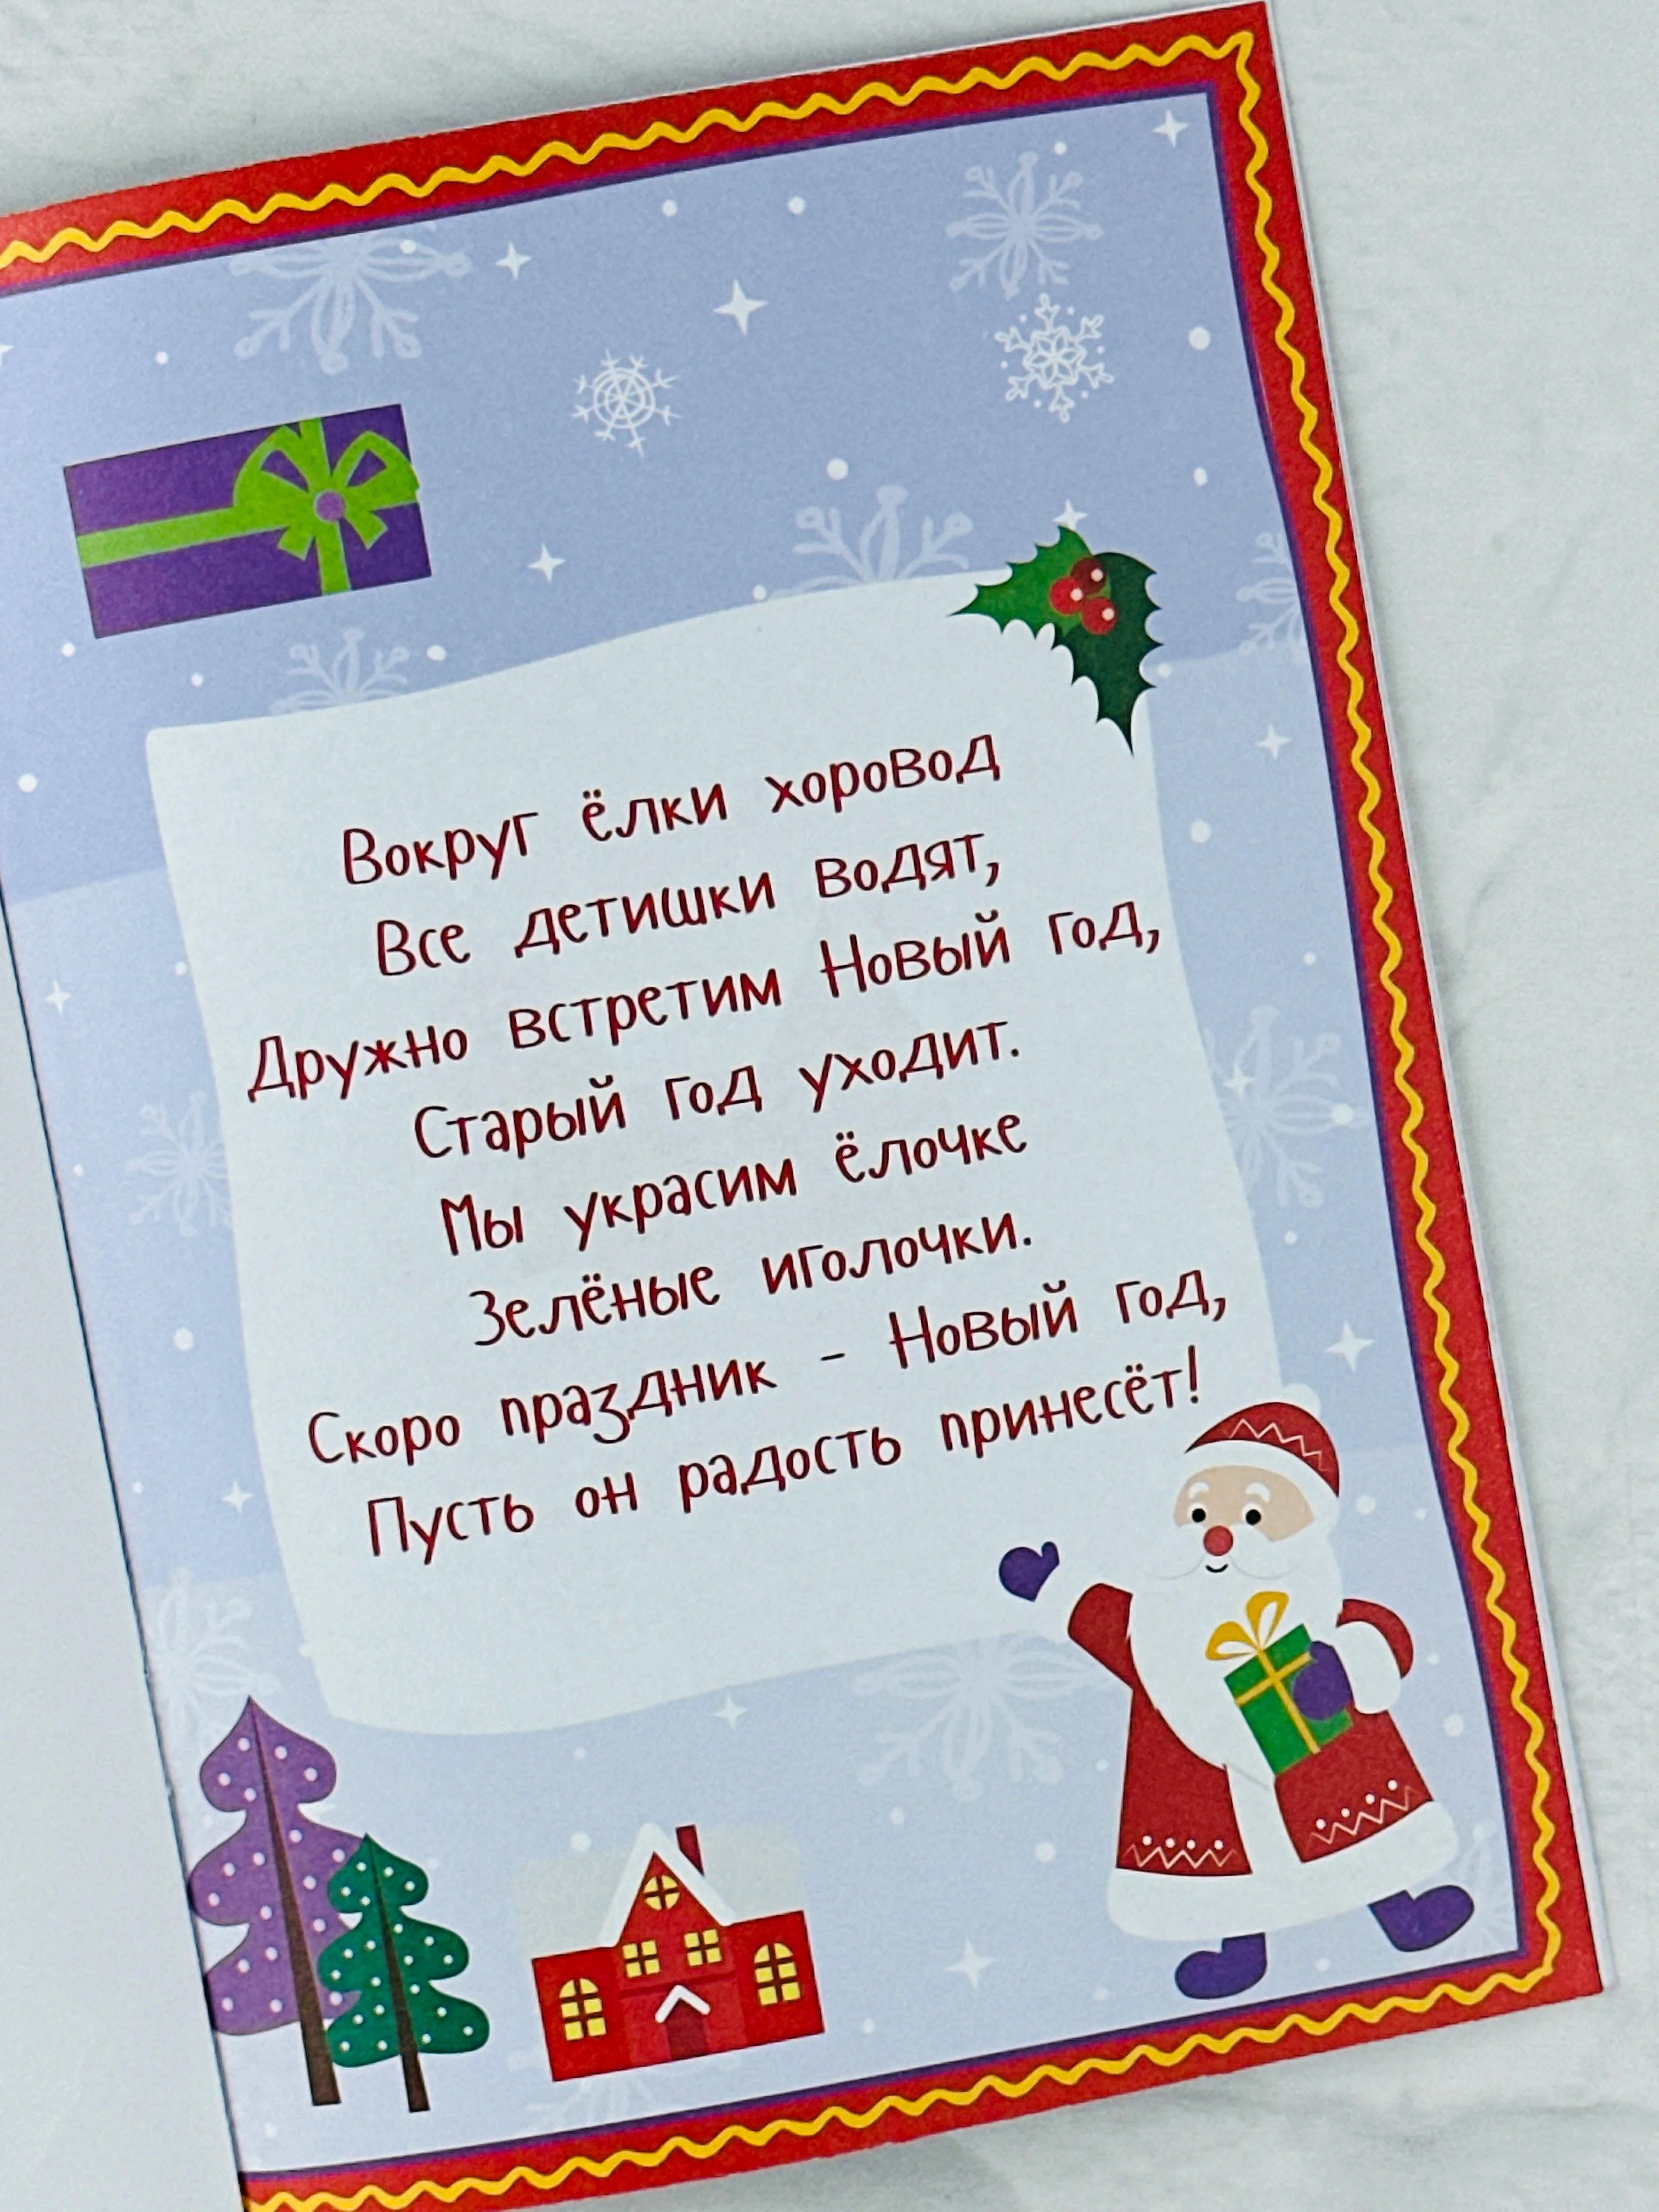 Вокруг ёлки хоровод
Все детишки водят,
Дружно встретим Новый год,
Старый год уходит.
Мы украсим ёлочке
Зелёные иголочки.
Скоро праздник - Новый год,
Пусть он радость принесёт!